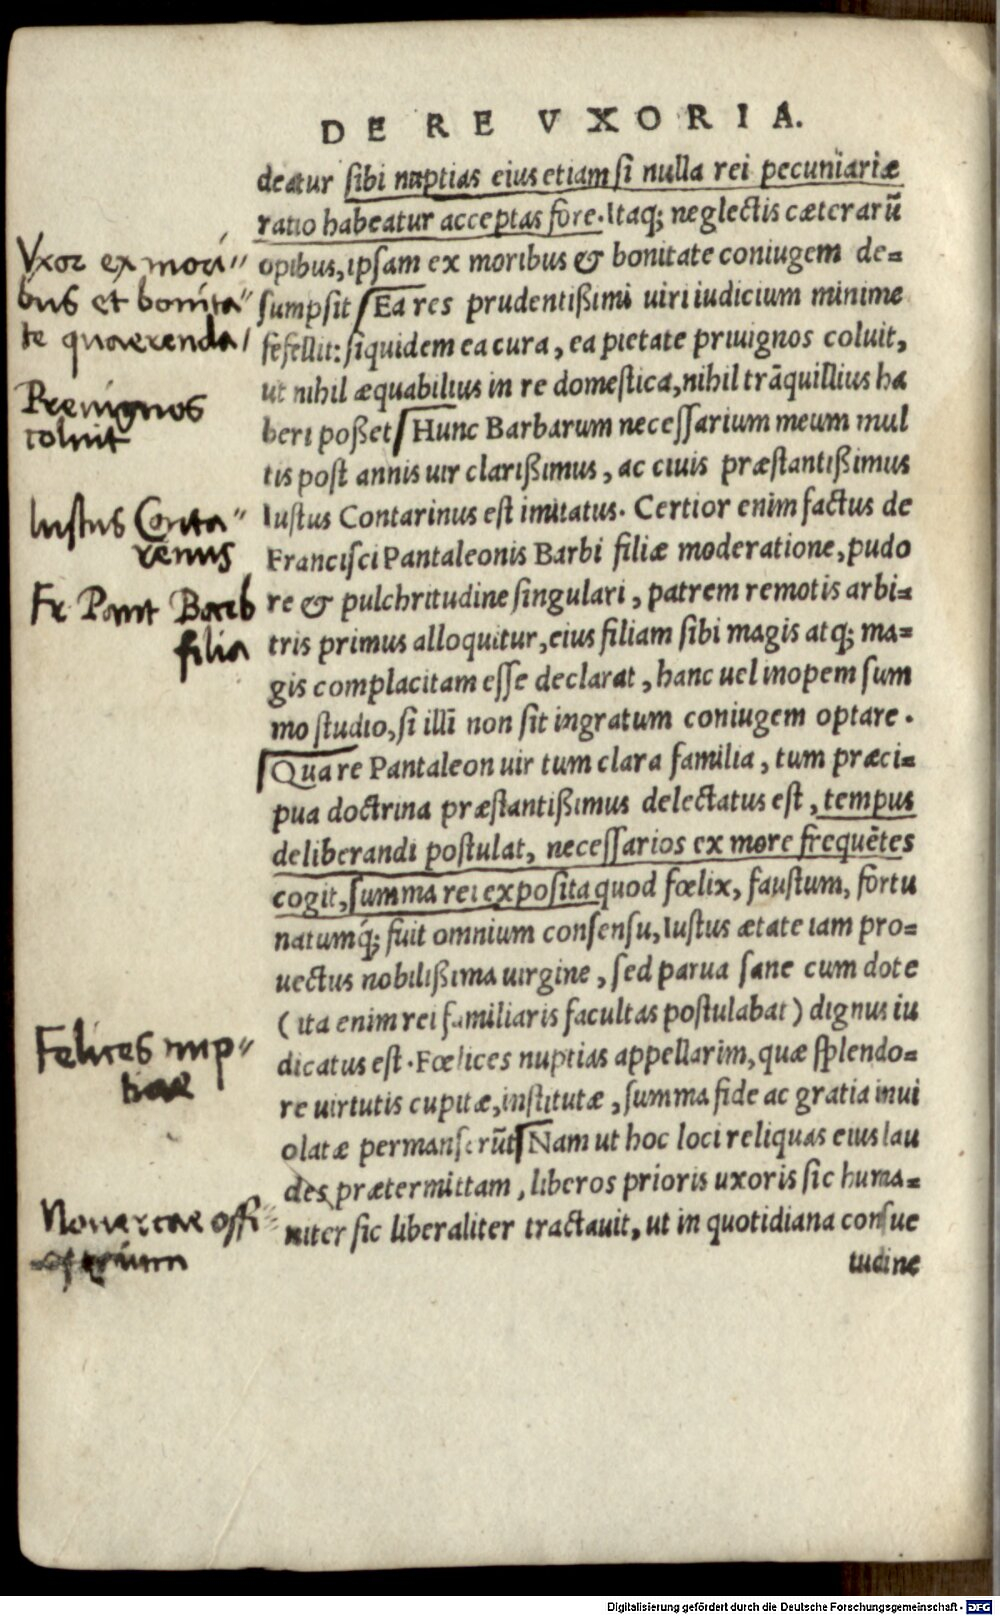 DE RE VXORIA.
deatur sibi nuptias eius etiam si nulla rei pecuniariæ
ratio habeatur acceptas fore. Itaq; neglectis cæterarū
opibus, ipsam ex moribus & bonitate coniugem de=
sumpsit Ea res prudentißimi uiri iudicium minime
fefellit: siquidem ea cura, ea pietate priuignos coluit,
ut nihil æquabilius in re domestica, nihil trāquillius ha
beri poßet Hunc Barbarum necessarium meum mul
tis post annis uir clarißimus, ac ciuis præstantißimus
Iustus Contarinus est imitatus. Certior enim factus de
Francisci Pantaleonis Barbi filiæ moderatione, pudo
re & pulchritudine singulari, patrem remotis arbi=
tris primus alloquitur, eius filiam sibi magis atq; ma=
gis complacitam esse declarat, hanc uel inopem sum
mo studio, si illi non sit ingratum coniugem optare.
Quare Pantaleon uir tum clara familia, tum præci=
pua doctrina præstantißimus delectatus est, tempus
deliberandi postulat, necessarios ex more frequētes
cogit, summa rei exposita quod fœlix, faustum, fortu
natumq́; fuit omnium consensu, Iustus ætate iam pro=
uectus nobilißima uirgine, sed parua sane cum dote
(ita enim rei familiaris facultas postulabat) dignus iu
dicatus est. Fœlices nuptias appellarim, quæ splendo=
re uirtutis cupitæ, institutæ, summa fide ac gratia inui
olatæ permanserūt Nam ut hoc loci reliquas eius lau
des prætermittam, liberos prioris uxoris sic huma=
niter sic liberaliter tractauit, ut in quotidiana consue
tudine
Vxor ex mori"
bus et bonita"
te quaerenda/
Preuignos
coluit
Iustus Conta"
renus
Fr Pant Barb
filia
Felices nup"
tiae
Nouercae offi"
Digitalisierung gefördert durch die Deutsche Forschungsgemeinschaft - DFG